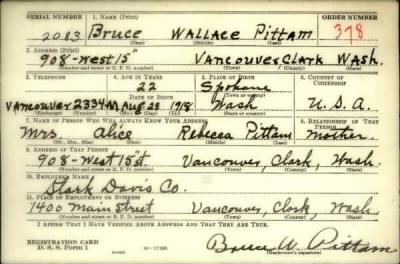 SERIAL NUMBER 1. NAME (Print) ORDER NUMBER
2083 Bruce Wallace Pittam 378
(First) (Middle) (Last)
2. ADDRESS (Print)
908-West 15" Vancouver Clark Wash.
(Number and street or R. F. D. number) (Town) (County) (State)
3. TELEPHONE 4. AGE IN YEARS 5. PLACE OF BIRTH 6. COUNTRY OF CITIZENSHIP
22 Spokane
DATE OF BIRTH (Town or county)
Vancouver 2334M Aug. 23 1918 Wash U.S.A.
(Exchange) (Number) (Mo.) (Day) (Yr.) (State or country)
7. NAME OF PERSON WHO WILL ALWAYS KNOW YOUR ADDRESS 8. RELATIONSHIP OF THAT PERSON
Mrs. Alice Rebecca Pittam Mother.
(Mr., Mrs., Miss) (First) (Middle) (Last)
9. ADDRESS OF THAT PERSON
908-West 15st. Vancouver, Clark, Wash.
(Number and street or R. F. D. number) (Town) (County) (State)
10. EMPLOYER'S NAME
Stark Davis Co.
11. PLACE OF EMPLOYMENT OR BUSINESS
1400 Main Street Vancouver, Clark, Wash.
(Number and street or R. F. D. number) (Town) (County) (State)
I AFFIRM THAT I HAVE VERIFIED ABOVE ANSWERS AND THAT THEY ARE TRUE.
REGISTRATION CARD
D. S. S. FORM 1 (over) Bruce W. Pittam
(Registrant's signature)